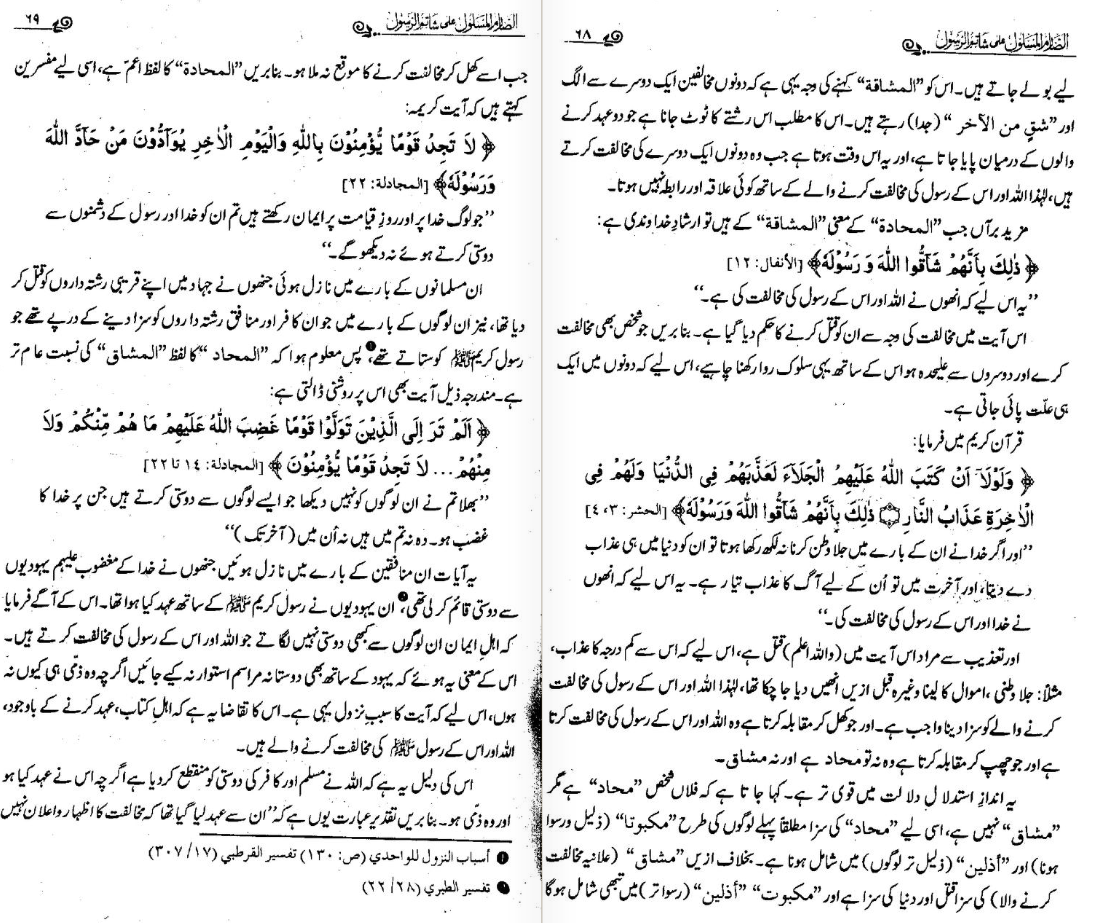 الصارم المسلول علی شاتم الرسول ٦٨
لیے بولے جاتے ہیں۔ اس کو ”المشاقة“ کہنے کی وجہ یہی ہے کہ دونوں مخالفین ایک دوسرے سے الگ
اور ”شقٍ من الآخر“ (جدا) رہتے ہیں۔ اس کا مطلب اس رشتے کا ٹوٹ جانا ہے جو دو عہد کرنے
والوں کے درمیان پایا جاتا ہے، اور یہ اس وقت ہوتا ہے جب وہ دونوں ایک دوسرے کی مخالفت کرتے
ہیں، لہٰذا اللہ اور اس کے رسول کی مخالفت کرنے والے کے ساتھ کوئی علاقہ اور رابطہ نہیں ہوتا۔
مزید برآں جب ”المحادة“ کے معنی ”المشاقة“ کے ہیں تو ارشادِ خداوندی ہے:
﴿ ذٰلِكَ بِاَنَّهُمْ شَآقُّوا اللّٰهَ وَ رَسُوْلَهٗ﴾ [الأنفال: ١٢]
”یہ اس لیے کہ انھوں نے اللہ اور اس کے رسول کی مخالفت کی ہے۔“
اس آیت میں مخالفت کی وجہ سے ان کو قتل کرنے کا حکم دیا گیا ہے۔ بنابریں جو شخص بھی مخالفت
کرے اور دوسروں سے علیحدہ ہو اس کے ساتھ یہی سلوک روا رکھنا چاہیے، اس لیے کہ دونوں میں ایک
ہی علّت پائی جاتی ہے۔
قرآن کریم میں فرمایا:
﴿ وَلَوْلَآ اَنْ كَتَبَ اللّٰهُ عَلَيْهِمُ الْجَلَآءَ لَعَذَّبَهُمْ فِى الدُّنْيَا وَلَهُمْ فِى
الْاٰخِرَةِ عَذَابُ النَّارِ ۝ ذٰلِكَ بِاَنَّهُمْ شَآقُّوا اللّٰهَ وَرَسُوْلَهٗ﴾ [الحشر: ٣، ٤]
”اور اگر خدا نے ان کے بارے میں جلا وطن کرنا نہ لکھ رکھا ہوتا تو ان کو دنیا میں ہی عذاب
دے دیتا، اور آخرت میں تو اُن کے لیے آگ کا عذاب تیار ہے۔ یہ اس لیے کہ انھوں
نے خدا اور اس کے رسول کی مخالفت کی۔“
اور تعذیب سے مراد اس آیت میں (واللہ اعلم) قتل ہے، اس لیے کہ اس سے کم درجہ کا عذاب،
مثلاً: جلا وطنی، اموال کا لینا وغیرہ قبل ازیں انھیں دیا جا چکا تھا، لہٰذا اللہ اور اس کے رسول کی مخالفت
کرنے والے کو سزا دینا واجب ہے۔ اور جو کھل کر مقابلہ کرتا ہے وہ اللہ اور اس کے رسول کی مخالفت کرتا
ہے اور جو چھپ کر مقابلہ کرتا ہے وہ نہ تو محاد ہے اور نہ مشاق۔
یہ اندازِ استدلال دلالت میں قوی تر ہے۔ کہا جاتا ہے کہ فلاں شخص ”محاد“ ہے مگر
”مشاق“ نہیں ہے، اسی لیے ”محاد“ کی سزا مطلقاً پہلے لوگوں کی طرح ”مکبوتا“ (ذلیل و رسوا
ہونا) اور ”أذلین“ (ذلیل تر لوگوں) میں شامل ہونا ہے۔ بخلاف ازیں ”مشاق“ (علانیہ مخالفت
کرنے والا) کی سزا قتل اور دنیا کی سزا ہے اور ”مکبوت“ ”أذلین“ (رسوا تر) میں تبھی شامل ہوگا
الصارم المسلول علی شاتم الرسول ٦٩
جب اسے کھل کر مخالفت کرنے کا موقع نہ ملا ہو۔ بنابریں ”المحادة“ کا لفظ اعمّ ہے، اسی لیے مفسرین
کہتے ہیں کہ آیت کریمہ:
﴿ لَا تَجِدُ قَوْمًا يُّؤْمِنُوْنَ بِاللّٰهِ وَالْيَوْمِ الْاٰخِرِ يُوَآدُّوْنَ مَنْ حَآدَّ اللّٰهَ
وَرَسُوْلَهٗ﴾ [المجادلة: ٢٢]
”جو لوگ خدا پر اور روزِ قیامت پر ایمان رکھتے ہیں تم ان کو خدا اور رسول کے دشمنوں سے
دوستی کرتے ہوئے نہ دیکھو گے۔“
ان مسلمانوں کے بارے میں نازل ہوئی جنھوں نے جہاد میں اپنے قریبی رشتہ داروں کو قتل کر
دیا تھا، نیز ان لوگوں کے بارے میں جو ان کافر اور منافق رشتہ داروں کو سزا دینے کے درپے تھے جو
رسول کریم ﷺ کو ستاتے تھے، ❶ پس معلوم ہوا کہ ”المحاد“ کا لفظ ”المشاق“ کی نسبت عام تر
ہے۔ مندرجہ ذیل آیت بھی اس پر روشنی ڈالتی ہے:
﴿ اَلَمْ تَرَ اِلَى الَّذِيْنَ تَوَلَّوْا قَوْمًا غَضِبَ اللّٰهُ عَلَيْهِمْ مَا هُمْ مِّنْكُمْ وَلَا
مِنْهُمْ ... لَا تَجِدُ قَوْمًا يُّؤْمِنُوْنَ ﴾ [المجادلة: ١٤ تا ٢٢]
”بھلا تم نے ان لوگوں کو نہیں دیکھا جو ایسے لوگوں سے دوستی کرتے ہیں جن پر خدا کا
غضب ہو۔ وہ نہ تم میں ہیں نہ اُن میں (آخر تک)“
یہ آیات ان منافقین کے بارے میں نازل ہوئیں جنھوں نے خدا کے مغضوب علیہم یہودیوں
سے دوستی قائم کر لی تھی، ❷ ان یہودیوں نے رسول کریم ﷺ کے ساتھ عہد کیا ہوا تھا۔ اس کے آگے فرمایا
کہ اہلِ ایمان ان لوگوں سے کبھی دوستی نہیں لگاتے جو اللہ اور اس کے رسول کی مخالفت کرتے ہیں۔
اس کے معنی یہ ہوئے کہ یہود کے ساتھ بھی دوستانہ مراسم استوار نہ کیے جائیں اگرچہ وہ ذمّی ہی کیوں نہ
ہوں، اس لیے کہ آیت کا سببِ نزول یہی ہے۔ اس کا تقاضا یہ ہے کہ اہلِ کتاب، عہد کرنے کے باوجود،
اللہ اور اس کے رسول ﷺ کی مخالفت کرنے والے ہیں۔
اس کی دلیل یہ ہے کہ اللہ نے مسلم اور کافر کی دوستی کو منقطع کر دیا ہے اگرچہ اس نے عہد کیا ہو
اور وہ ذمّی ہو۔ بنابریں تقدیر عبارت یوں ہے کہ ”ان سے عہد لیا گیا تھا کہ مخالفت کا اظہار و اعلان نہیں
❶ أسباب النزول للواحدي (ص: ١٣٠) تفسير القرطبي (١٧/ ٣٠٧)
❷ تفسير الطبري (٢٨/ ٢٢)